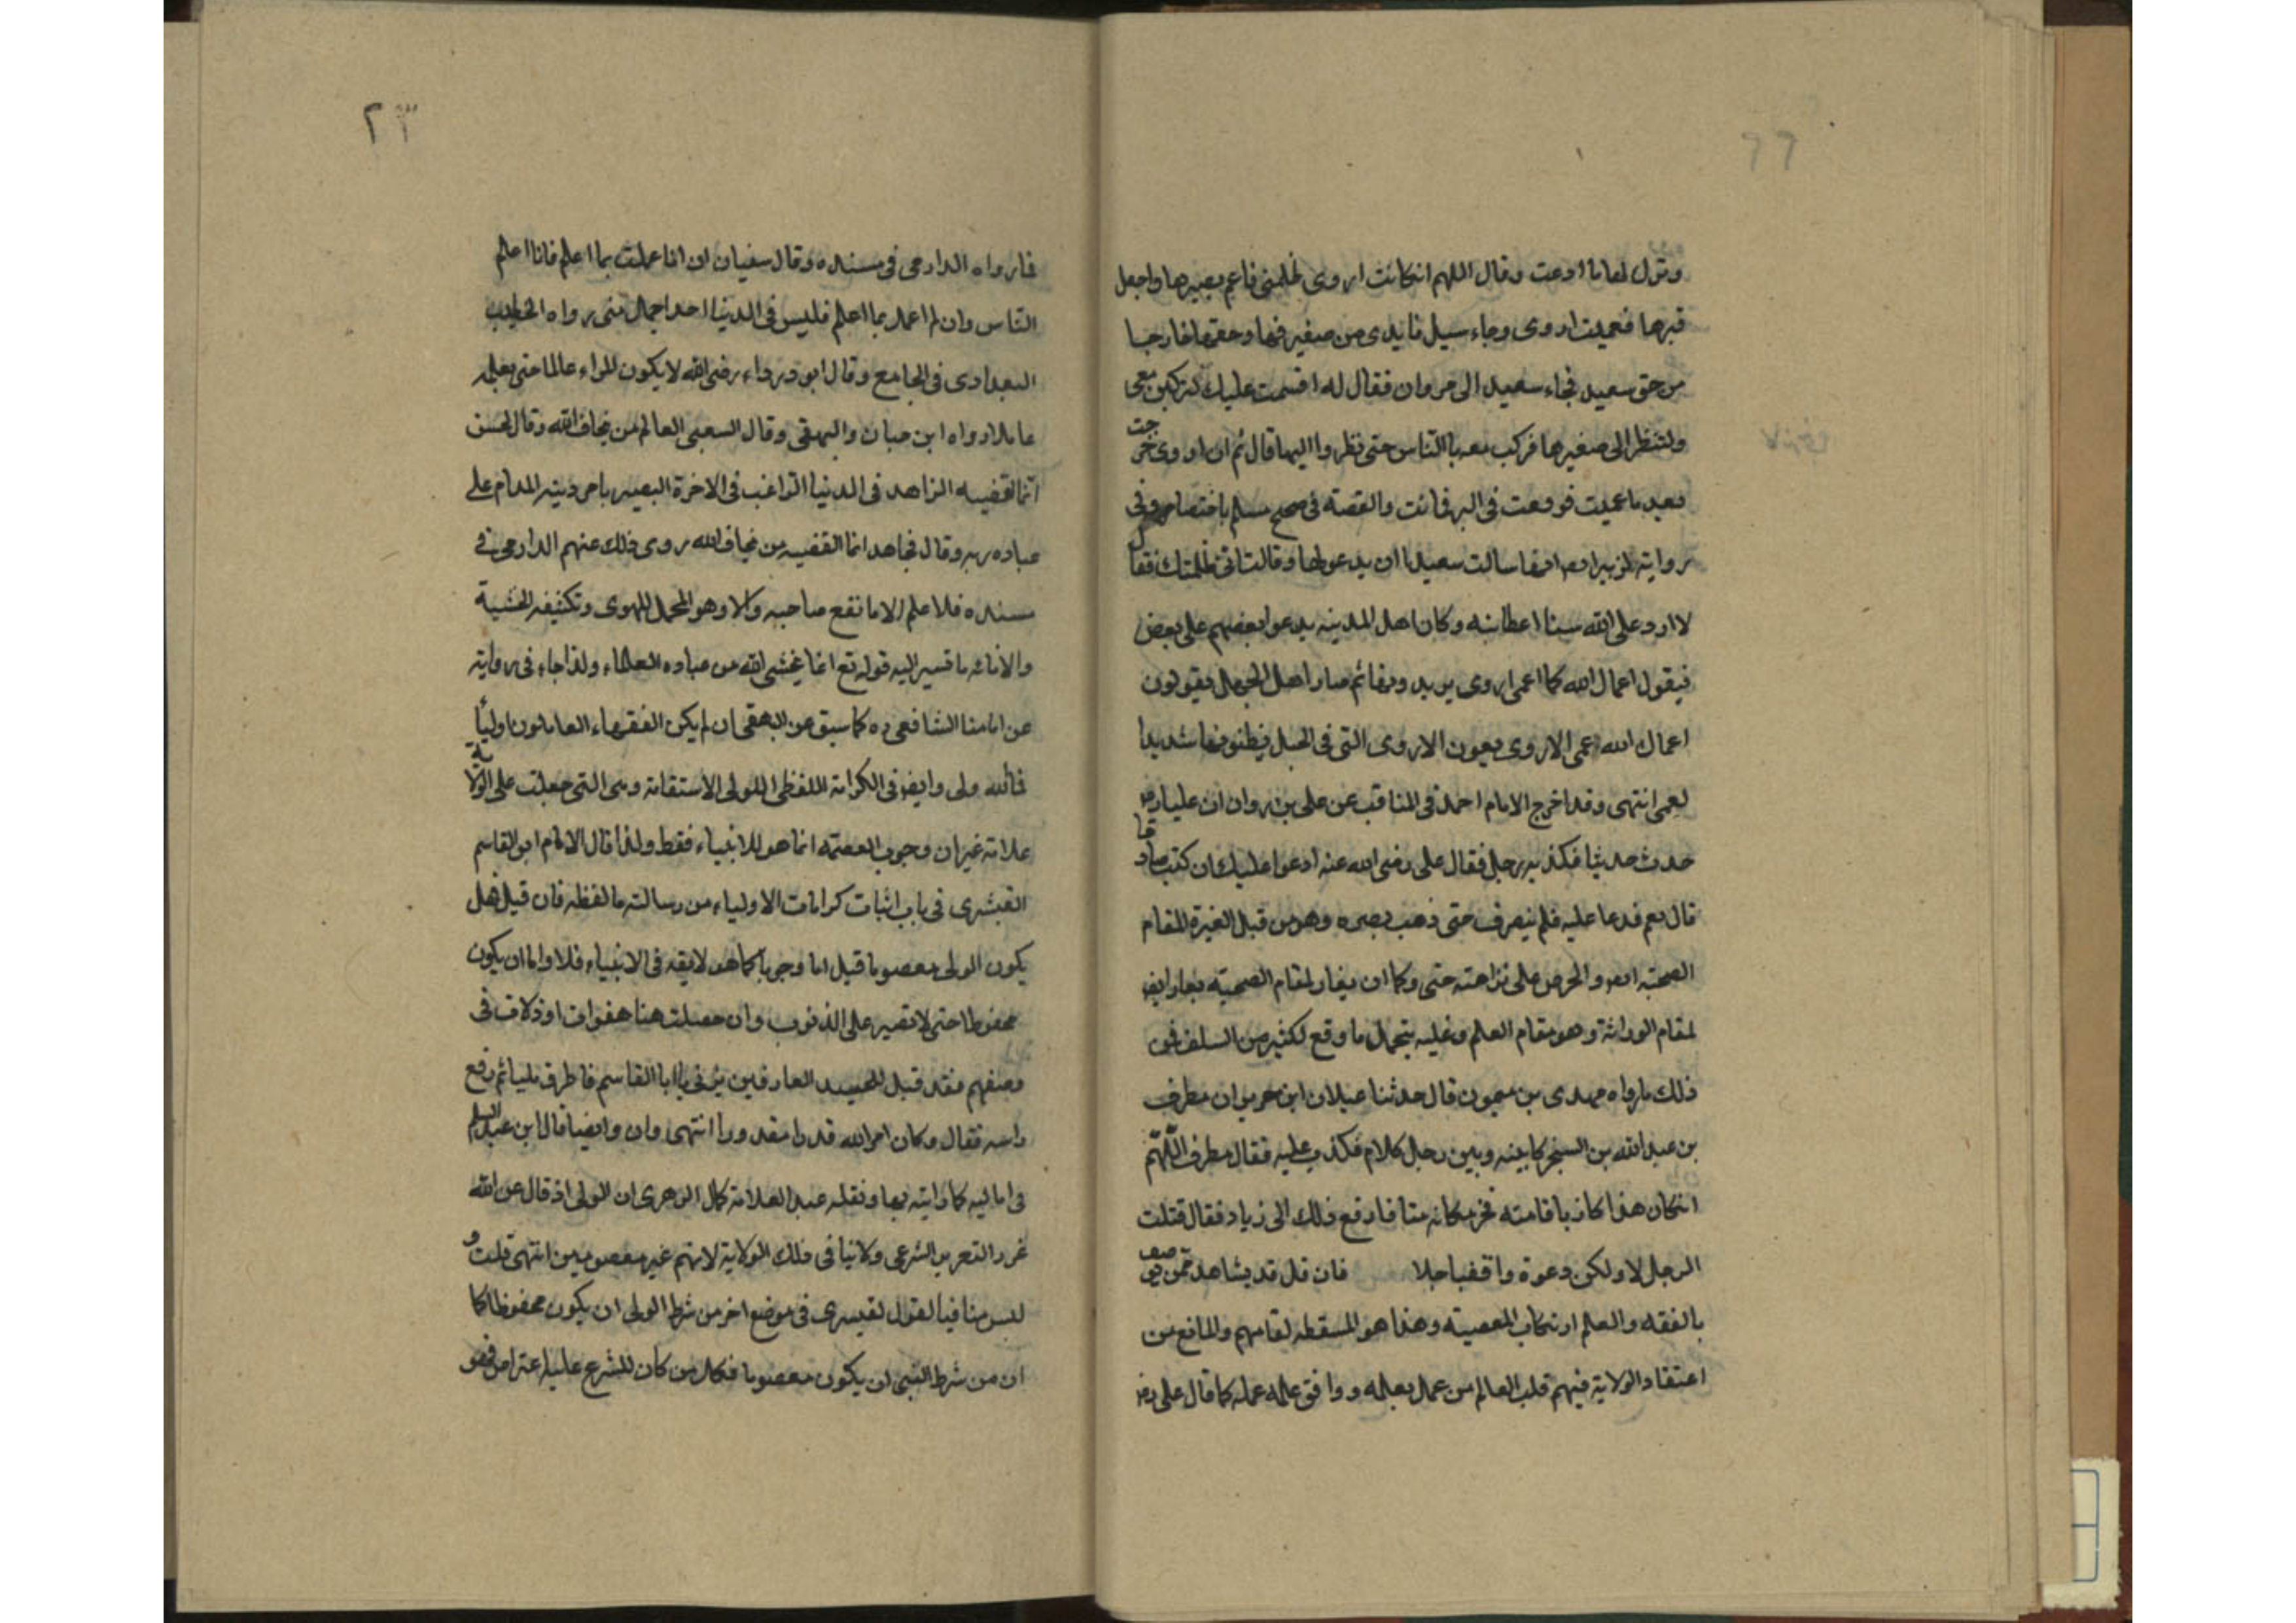 ٢٢
وترك لها ما ادعت وقال اللهم انكانت اروى ظلمنى فاعم بصيرها واجعل
قبرها فعميت اروى وجاء سيل فابدى من صغير فها وحقها خارجا
من حق سعيد فجاء سعيد الى مروان فقال له اقسمت عليك لتركبن معى
ولتنظر الى صغيرها فركب معه بالناس حتى نظروا اليها قال ثم ان اروى خرجت
بعد ما عميت فوقعت فى البر فماتت والقصة فى صحيح مسلم باختصار وفى
رواية لزبير انها سالت سعيدا ان يدعو لها وقالت انى ظلمتك فقال
لا ارد على الله سيئا اعطانيه وكان اهل المدينه يدعوا بعضهم على بعض
فيقول اعماك الله كما اعمى اروى يريدونها ثم صار اهل الجهل يقولون
اعماك الله عمى الاروى يعون الاروى التى فى الجبل يظنونها شديدا
لعمى انتهى وقد اخرج الامام احمد فى المناقب عن على بن روان ان عليا رض
حدث حديثا فكذبه رجل فقال على رضى الله عنه ادعوا عليك ان كنت صادقا
قال نعم فدعا عليه فلم ينصرف حتى ذهب بصره وهو من قبل الغيرة لمقام
الصحبة والحرص على نزاهته حتى وكما ان يغار لمقام الصحبة
لمقام الوراثة وهو مقام العلم وعليه يتحمل ما وقع لكثير من السلف فمن
ذلك ما رواه مهدى بن ميمون قال حدثنا عيلان ابن جرير ان مطرف
بن عبد الله بن السخير كا بينه وبين رجل كلام فكذب عليه فقال مطرف اللهم
انكان هذا كاذبا فامته فخر مكانه ميتا فارفع ذلك الى زياد فقال قتلت
الرجل لا ولكن دعوة وافقت اجلا فان قل قد يشاهد ممن
بالفقه والعلم ارتكاب المعصية وهذا هو المسقطه لقامهم والمانع من
اعتقاد الولاية فيهم قلت العالم من عمل بعلمه ووافق علمه عمله كما قال على رض
٢٣
فارواه الدارمى فى مسنده وقال سفيان ان انا عملت بما اعلم فانا اعلم
الناس وان لم اعمل بما اعلم فليس فى الدنيا احد اجهل منى رواه الخطيب
البغدادى فى الجامع وقال ابو درداء رضى الله لا يكون المراء عالما حتى بعلمه
عاملا رواه ابن حبان والبيهقى وقال السعبى العالم من يخاف الله وقال الحسن
انما لفقيه الزاهد فى الدنيا الراغب فى الاخرة البصير بامر دينه المدام على
عباده ربه وقال مجاهد انما الفقيه من يخاف الله روى ذلك عنهم الدارمى فى
مسنده فلا علم الا ما نفع صاحبه والا وهو المحمل للهوى وتكثيفه الخشية
والانابه ما تسير اليه قوله تع انما يخشى الله من عباده العلماء ولذا جاء فى رواية
عن امامنا الشافعى ره كما سبق عن البيهقى ان لم يكن الفقهاء العاملون اوليأ
فمالله ولى وايض فى الكرامة اللفظى للولى الاستقامة وهى التى جعلت على الولاية
علامة غير ان وجوب العصمه انما هو للانبياء فقط ولذا قال الامام ابو القاسم
القشيرى فى باب اثبات كرامات الاولياء من رسالته ما لفظه فان قيل هل
يكون الولى معصوما قيل اما وجوبا كما هو لايقه فى الانبياء فلا واما ان يكون
محفوظا حتى لا تصير على الذنوب وان حصلت هنا هفوات او ذلات فى
وصفهم فقد قيل للجنيد العارفين يزنى يا ابا القاسم فاطرف مليا ثم رفع
راسه فقال وكان امر الله قدرا مقدورا انتهى وان وايضا قال ابن عبد السلم
فى اماليه كما رايته بها ونقله عبد العلامة كمال الوهرى ان الولى اذ قال عن الله
غرر التعزير الشرعى ولا نيا فى ذلك الولاية لانهم غير معصومين انتهى قلت و
ليس منافيا لقول لقيسرى فى موضع اخر من شرط الولى ان يكون محفوظا كما
ان من شرط النبى ان يكون معصوما فكل من كان للشرع عليه اعتراض فهو